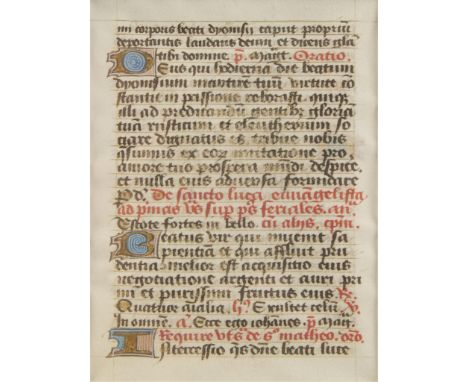 mi corporis beati dyonisii caput proprium
deportantis laudans deum et dicens gla
tibi domine. p. magt. Oratio.
Deus qui hodierna die beatum
dyonisium martirem tuum virtute co
stantie in passione roborasti quique
illi ad predicandum gentibus gloriam
tuam rusticum et eleutherium so
ciare dignatus es tribue nobis
quesumus ex eorum imitatione pro
amore tuo prospera mundi despice
et nulla eius adversa formidare
P d. De sancto luca evangelista
ad primas vs sup ps feriales. an.
Estote fortes in bello. cum aliis, cpm.
Beatus vir qui invenit sa
pientiam et qui affluit pru
dentia melior est acquisitio eius
negotiatione argenti et auri pri
mi et purissimi fructus eius
Quatuor animalia. h. Exultet celum.
In omnem. a. Ecce ego iohannes. p. magt.
Require vts de so matheo. oro.
Intercessio qs domine beati luce